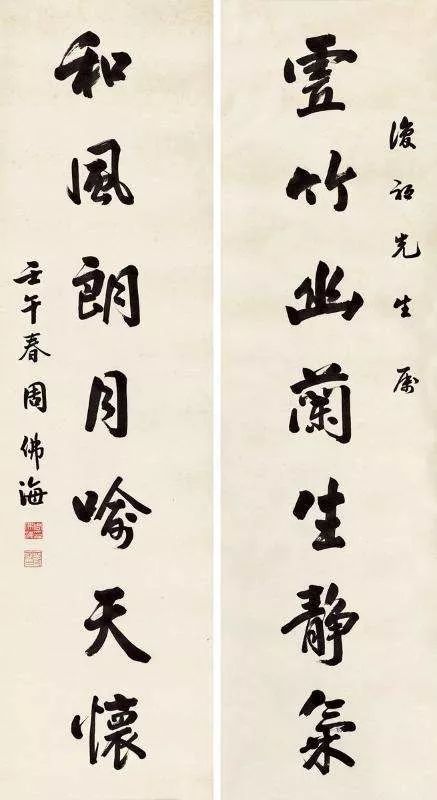 復初先生属
虛竹幽蘭生靜氣
和風朗月喻天懷
壬午春周佛海